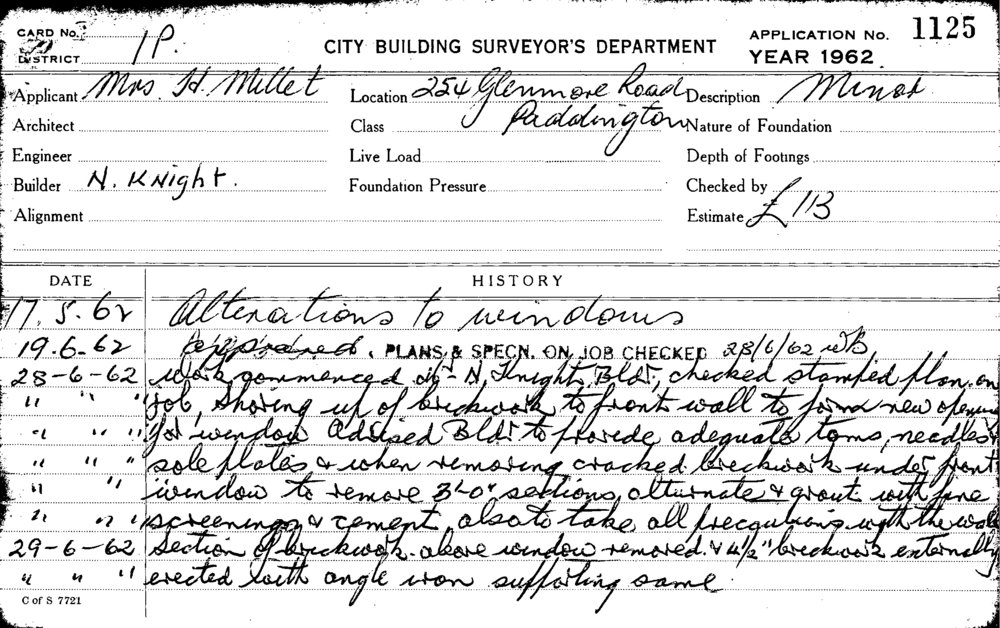 CARD No. 1P.
DISTRICT
CITY BUILDING SURVEYOR'S DEPARTMENT
APPLICATION No. 1125
YEAR 1962
Applicant Mrs. H. Millet
Location 254 Glenmore Road Paddington
Description Minor
Architect
Class
Nature of Foundation
Engineer
Live Load
Depth of Footings
Builder N. Knight.
Foundation Pressure
Checked by
Alignment
Estimate £113
DATE HISTORY
17.5.62 Alterations to windows
19.6.62 approved. PLANS & SPECN. ON JOB CHECKED 28/6/62
28-6-62 Work commenced by N. Knight, Bldr, checked stamped plan on
" " " job, shoring up of brickwork to front wall to form new opening
" " " for window Advised Bldr to provide adequate toms, needles
" " " sole plates & when removing cracked brickwork under front
" " window to remove 3'-0" sections, alternate & grout with fine
" " " screenings & cement, also to take all precautions with the work
29-6-62 Section of brickwork above window removed & 4½" brickwork externally
" " " erected with angle iron supporting same
C of S 7721